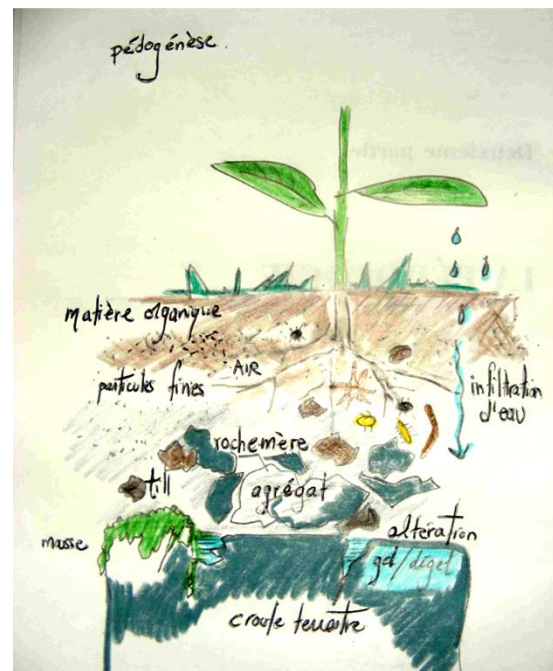 pédogénèse.
Deuxième partie
matière organique
AIR
particules fines
infiltration
d'eau
rochemère
till
agrégat
altération
masse
gel/dégel
croute terrestre